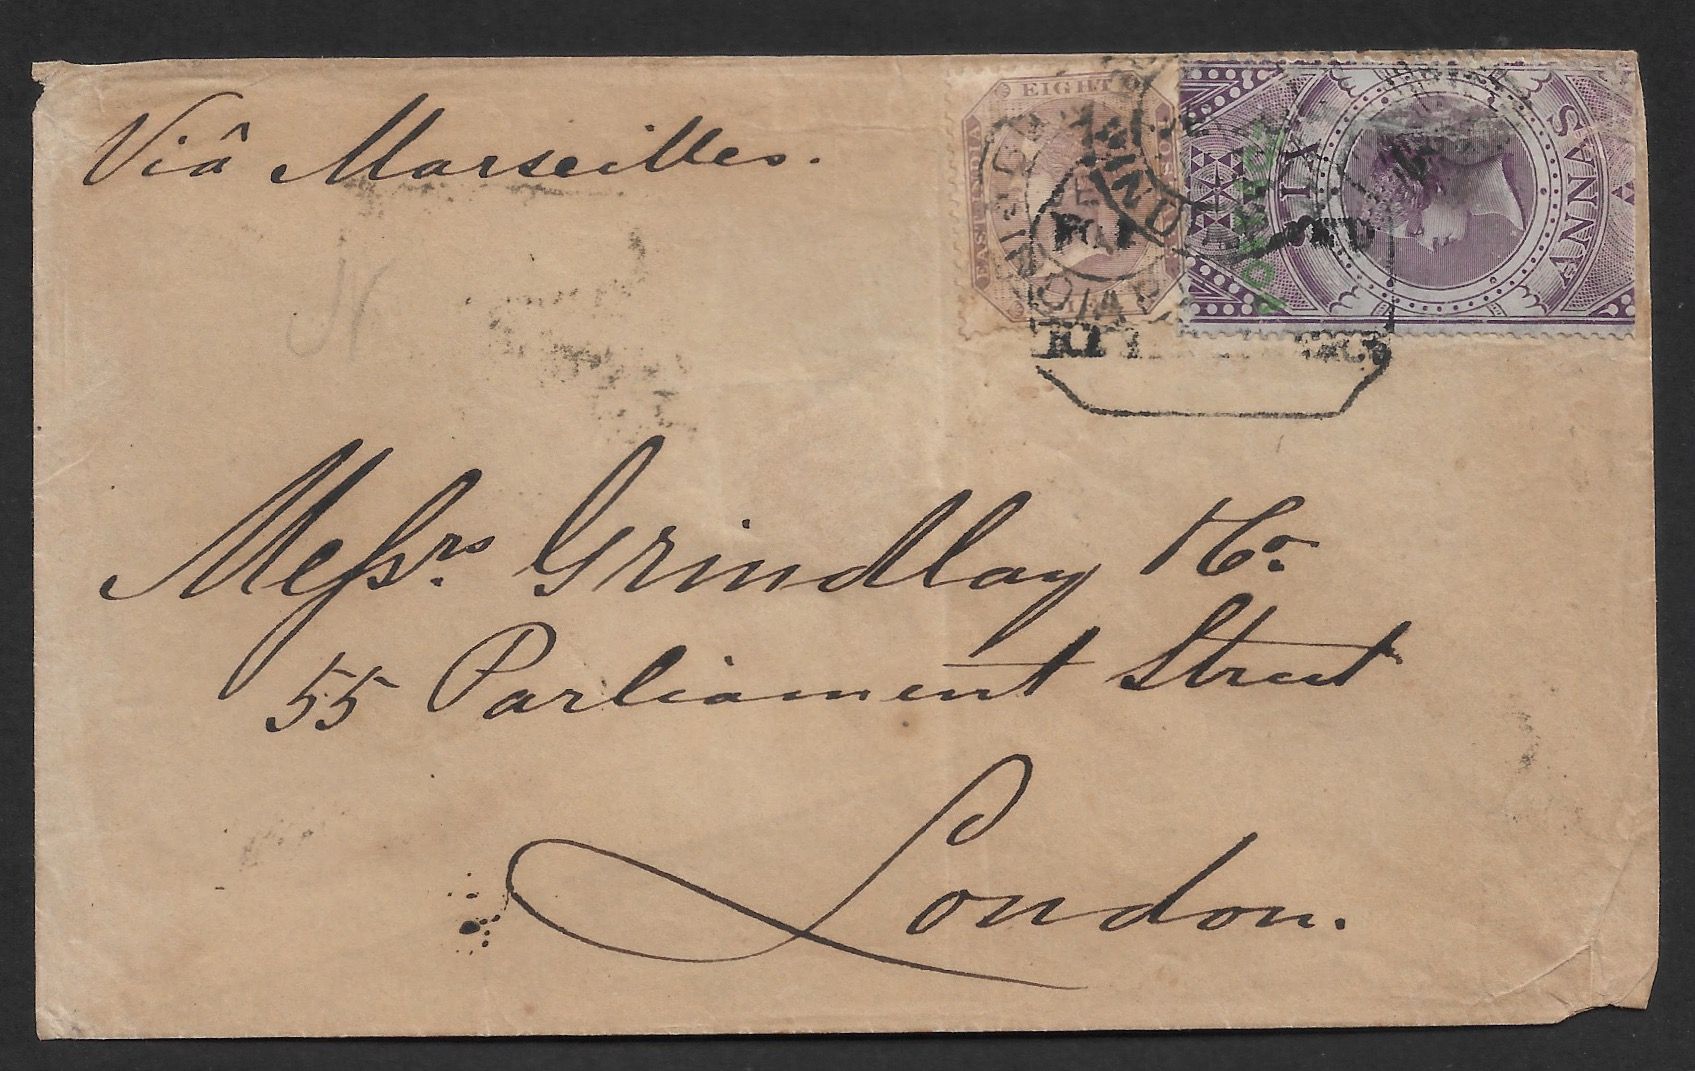 Viâ Marseilles.
EIGHT
EAST INDIA
SIX
ANNAS
POSTAGE
Messrs. Grindlay & Co.
55 Parliament Street
London.